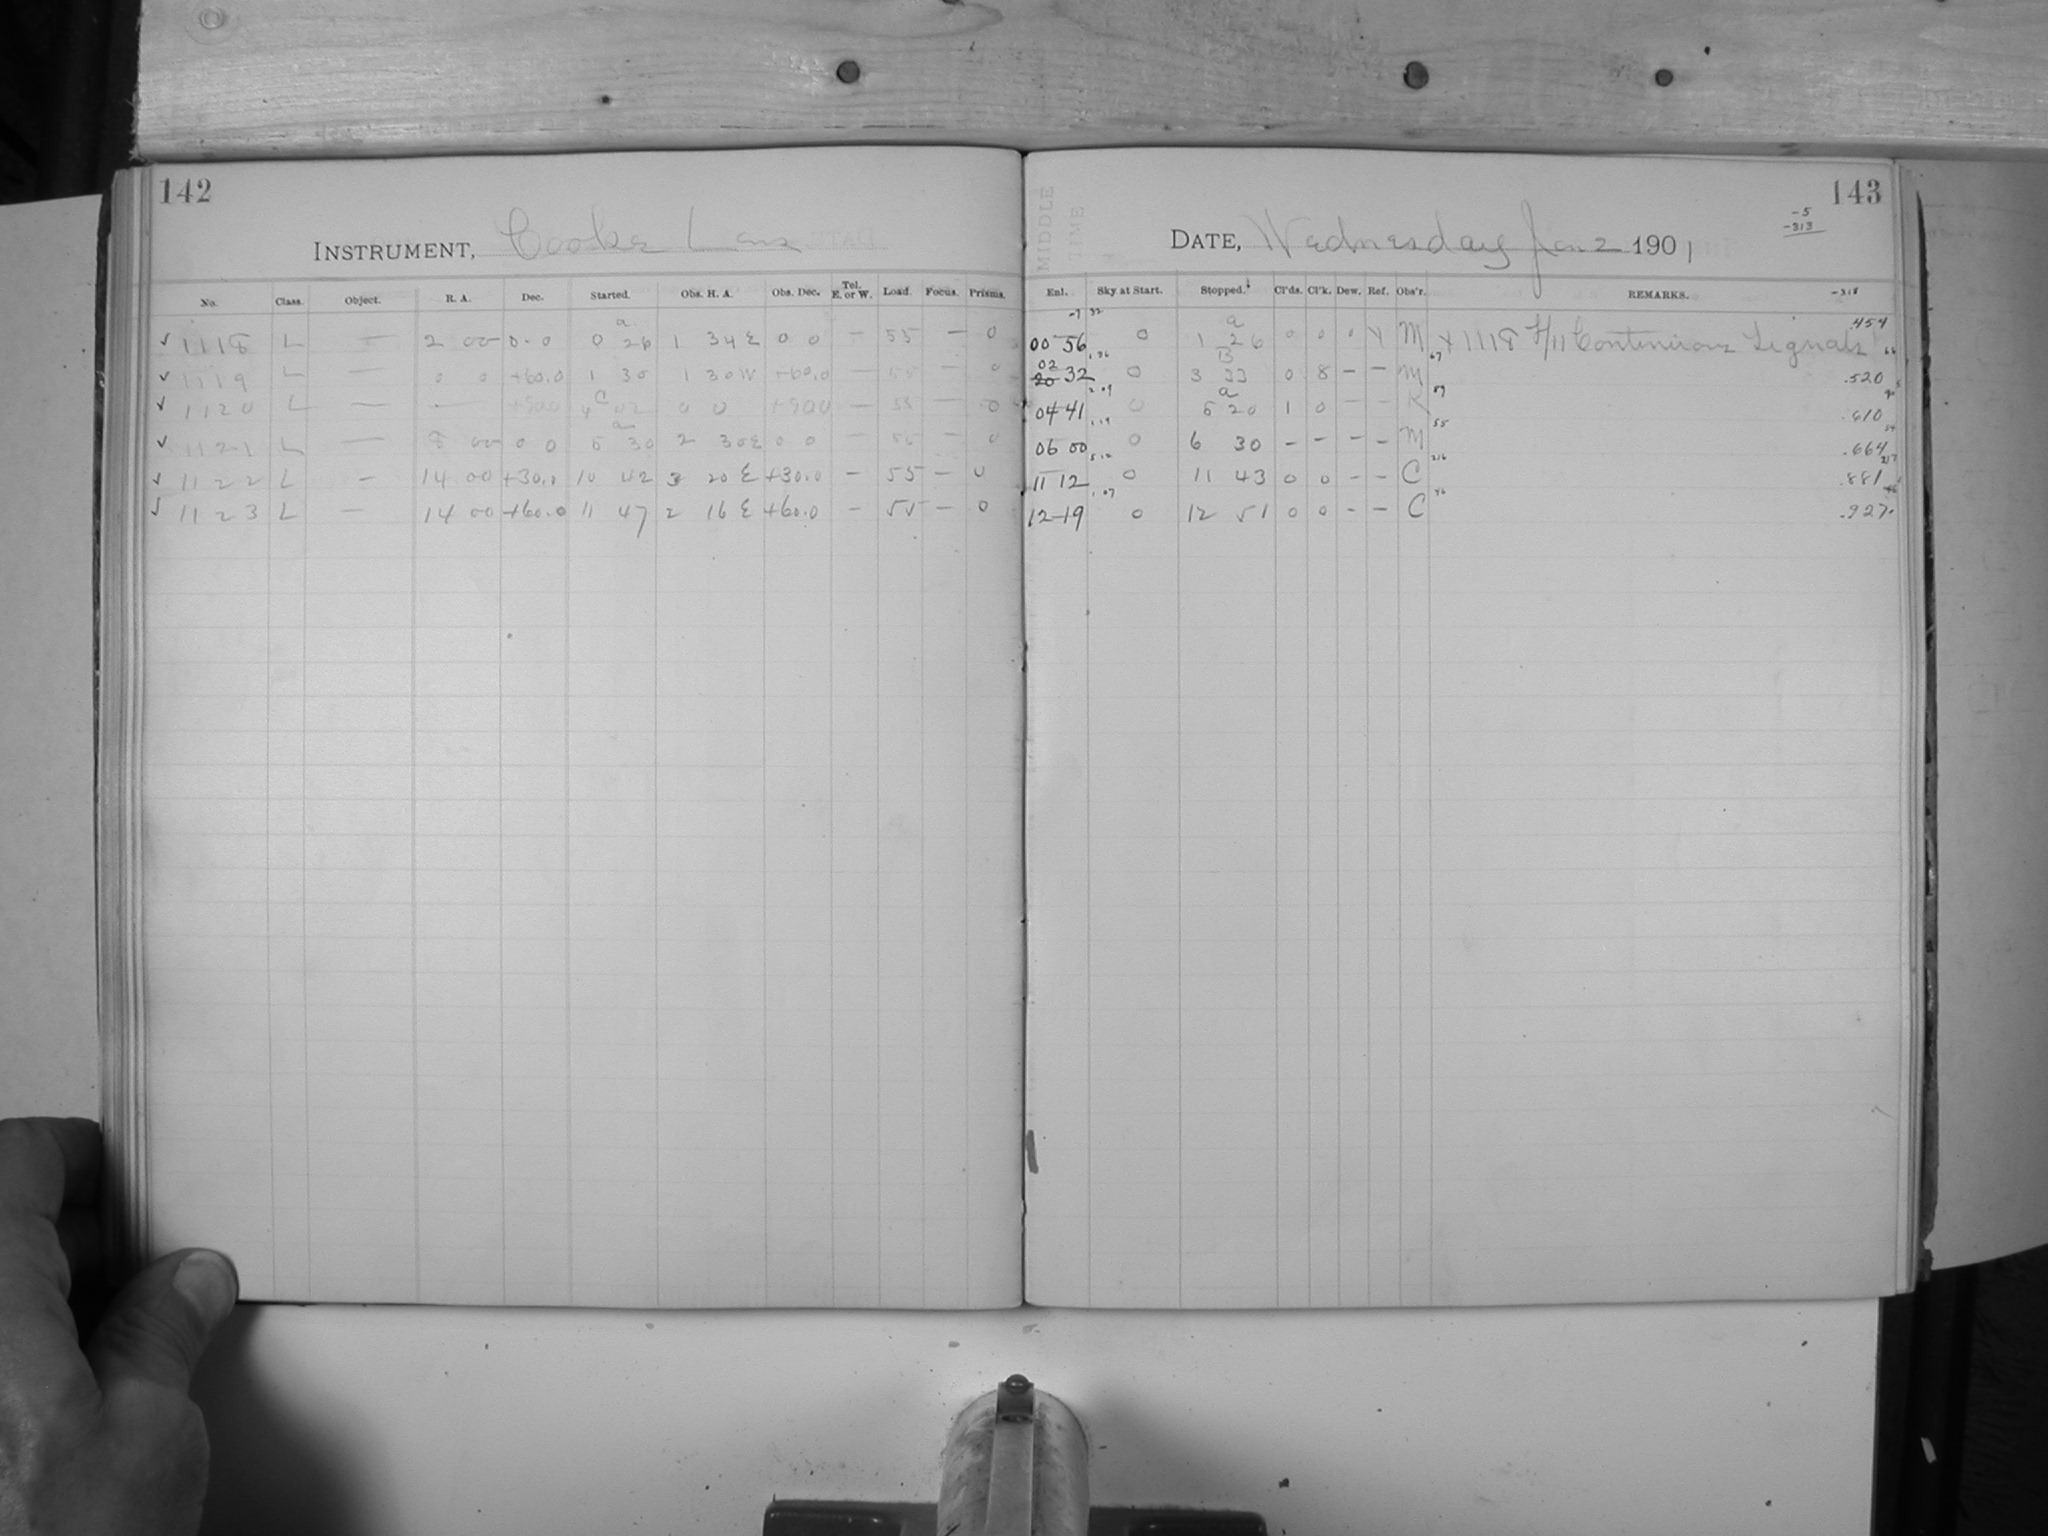 142
INSTRUMENT, Cooke Lens
No. Class. Object. R. A. Dec. Started. Obs. H. A. Obs. Dec. Tel. E. or W. Load. Focus. Prisms.
✓ 1118 L — 2 00 0.0 0 26 1 34 E 0 0 — 55 — 0
✓ 1119 L — 0 0 +60.0 1 30 1 30 W +60.0 — 55 — 0
✓ 1120 L — — +90.0 4 02 0 0 +90.0 — 55 — 0
✓ 1121 L — 8 00 0 0 5 30 2 30 E 0 0 — 55 — 0
✓ 1122 L — 14 00 +30.0 10 42 3 20 E +30.0 — 55 — 0
✓ 1123 L — 14 00 +60.0 11 47 2 16 E +60.0 — 55 — 0
143
MIDDLE TIME
-5
-313
DATE, Wednesday Jan 2 1901
Enl. Sky at Start. Stopped. Cl'ds. Cl'k. Dew. Ref. Obs'r. REMARKS. -318
00 56 0 1 a 26 0 0 0 x M x 1118 F/11 Continuous Signals .454
02 32 0 3 33 0 8 — — M .520
04 41 0 5 a 20 1 0 — — K .610
06 00 0 6 30 — — — — M .664
11 12 0 11 43 0 0 — — C .881
12 19 0 12 51 0 0 — — C .927